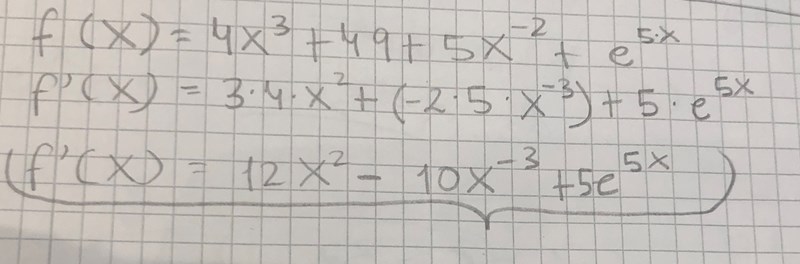 f(x) = 4x³ + 49 + 5x⁻² + e⁵·ˣ
f'(x) = 3·4·x² + (-2·5·x⁻³) + 5·e⁵ˣ
(f'(x) = 12x² - 10x⁻³ + 5e⁵ˣ)